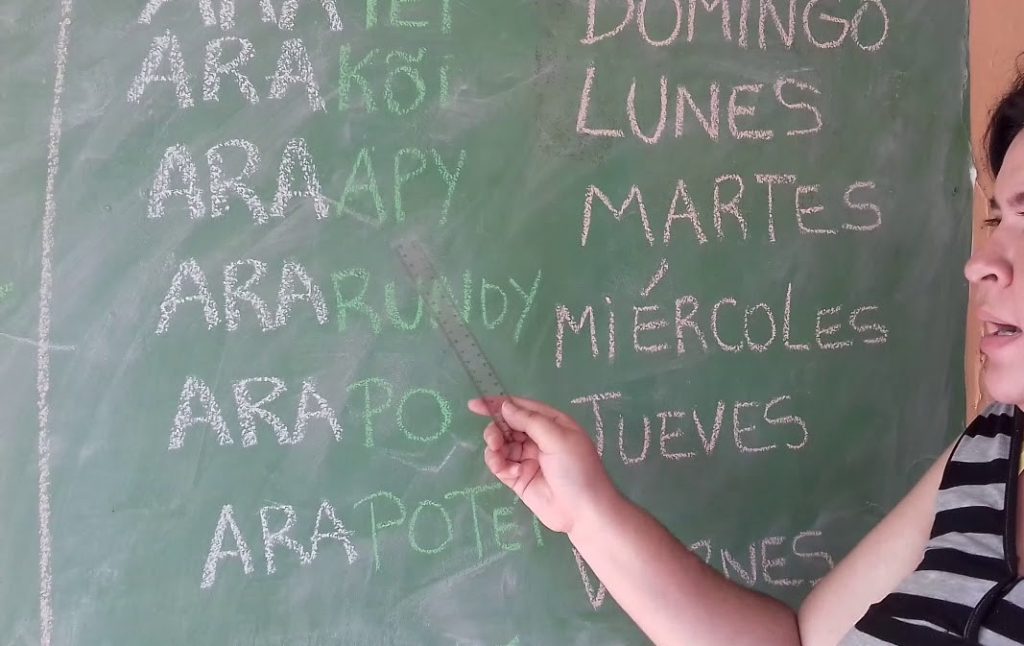 ARA TEI DOMINGO
ARA KÕI LUNES
ARA APY MARTES
ARA RUNDY MIÉRCOLES
ARA PO JUEVES
ARA POTEI